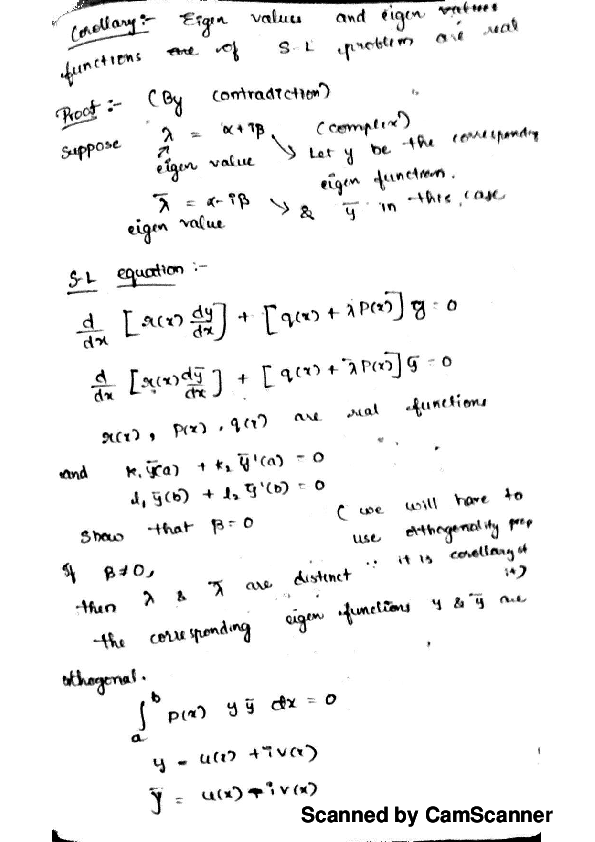 Corollary:- Eigen values and eigen
functions of S-L problem are real
Proof:- (By contradiction)
Suppose λ = α+iβ (complex)
eigen value Let y be the corresponding
eigen function.
λ̄ = α-iβ & ȳ in this case
eigen value
S-L equation:-
d/dx [r(x) dy/dx] + [q(x) + λP(x)] y = 0
d/dx [r(x) dȳ/dx] + [q(x) + λ̄P(x)] ȳ = 0
r(x), P(x), q(x) are real functions
and k₁ȳ(a) + k₂ȳ'(a) = 0
l₁ȳ(b) + l₂ȳ'(b) = 0
Show that β=0 (we will have to
use orthogonality prop
If β≠0, ∵ it is corollary of
it)
then λ & λ̄ are distinct
the corresponding eigen functions y & ȳ are
orthogonal.
∫ₐᵇ P(x) y ȳ dx = 0
y = u(x) + iv(x)
ȳ = u(x) - iv(x)
Scanned by CamScanner